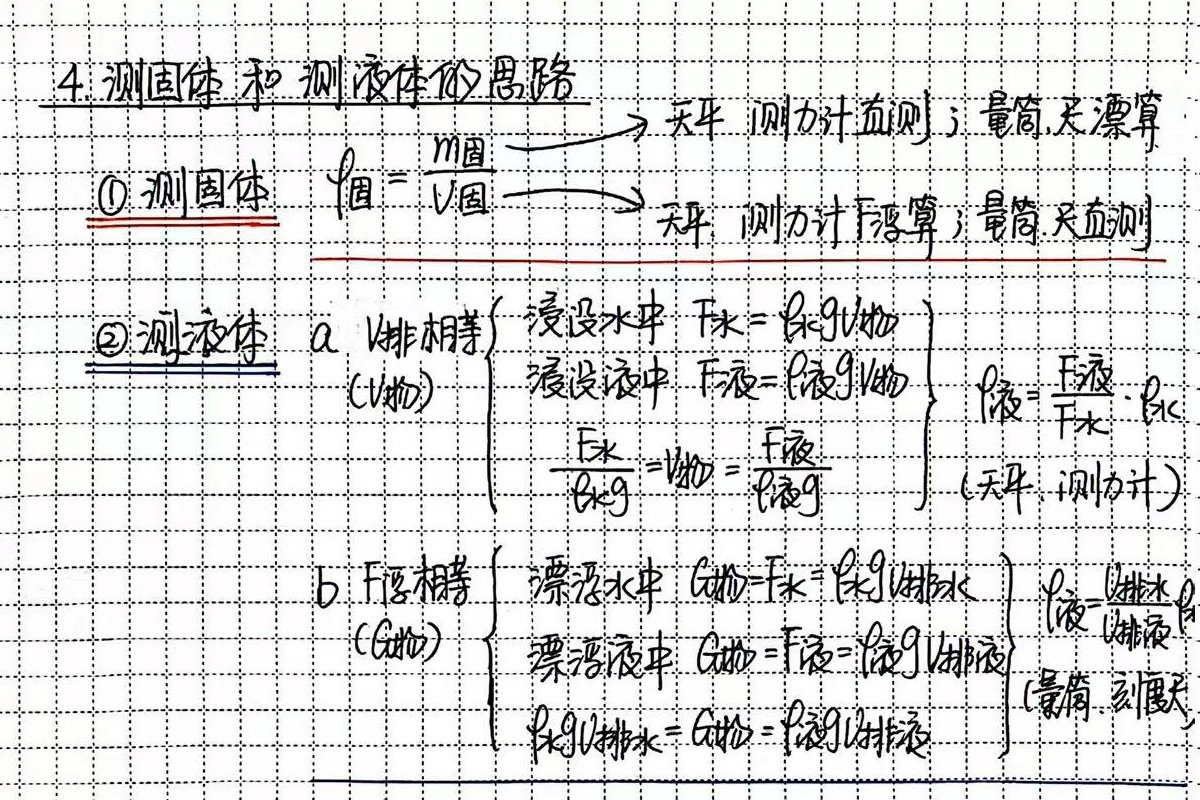 4. 测固体和测液体的思路
① 测固体 ρ固 = m固/V固
→ 天平 测力计直测；量筒、尺漂算
→ 天平 测力计F浮算；量筒、尺直测
② 测液体 a V排相等 (V物)
浸没水中 F水 = ρ水gV物
浸没液中 F液 = ρ液gV物
F水/ρ水g = V物 = F液/ρ液g
ρ液 = F液/F水 · ρ水
(天平、测力计)
b F浮相等 (G物)
漂浮水中 G物 = F水 = ρ水gV排水
漂浮液中 G物 = F液 = ρ液gV排液
ρ水gV排水 = G物 = ρ液gV排液
ρ液 = V排水/V排液 ρ
(量筒、刻度尺